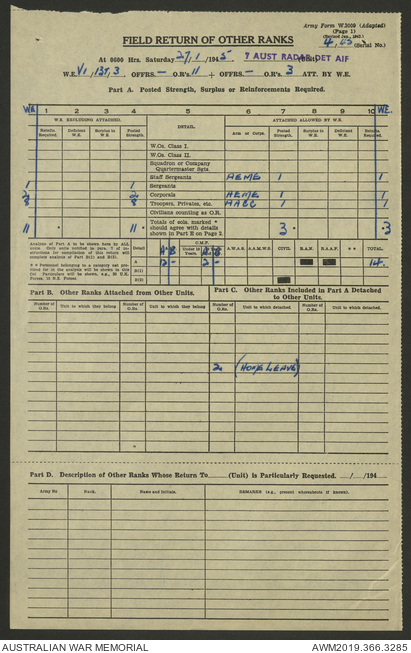 Army Form W.3009 (Adapted)
(Page 1)
FIELD RETURN OF OTHER RANKS
4, (Serial No.)
At 0600 Hrs. Saturday 27/1/1945 9 AUST RADAR DET AIF (Unit)
W.E. V1/137/3 OFFRS. — O.R's. 11 + OFFRS. — O.R's. 3 ATT. BY W.E.
Part A. Posted Strength, Surplus or Reinforcements Required.
WE 1 2 3 4 5 6 7 8 9 10 WE.
W.E. EXCLUDING ATTACHED. DETAIL. ATTACHED ALLOWED BY W.E.
Reinfts. Required. Deficient W.E. Surplus to W.E. Posted Strength. Arm or Corps. Posted Strength. Surplus to W.E. Deficient W.E. Reinfts. Required.
W.Os. Class I.
W.Os. Class II.
Squadron or Company Quartermaster Sgts.
Staff Sergeants AEME 1 1
1 1 Sergeants
2 2 Corporals AEME 1 1
8 8 Troopers, Privates, etc. AACC 1 1
Civilians counting as O.R.
11 11 * Totals of cols. marked * should agree with details shown in Part E on Page 2. 3 * 3
Analysis of Part A to be shown here by ALL units.
Detail C.M.F. A.W.A.S. A.A.M.W.S. CIVIL R.A.N. R.A.A.F. * * TOTAL.
A 12 - 2 - 14
B(1)
B(2)
Part B. Other Ranks Attached from Other Units.
Part C. Other Ranks Included in Part A Detached to Other Units.
Number of O.Rs. Unit to which they belong Number of O.Rs. Unit to which they belong Number of O.Rs. Unit to which detached. Number of O.Rs. Unit to which detached.
2 (HOME LEAVE)
Part D. Description of Other Ranks Whose Return To (Unit) is Particularly Requested. / /194
Army No Rank. Name and Initials. REMARKS (e.g., present whereabouts if known).
AUSTRALIAN WAR MEMORIAL
AWM2019.366.3285